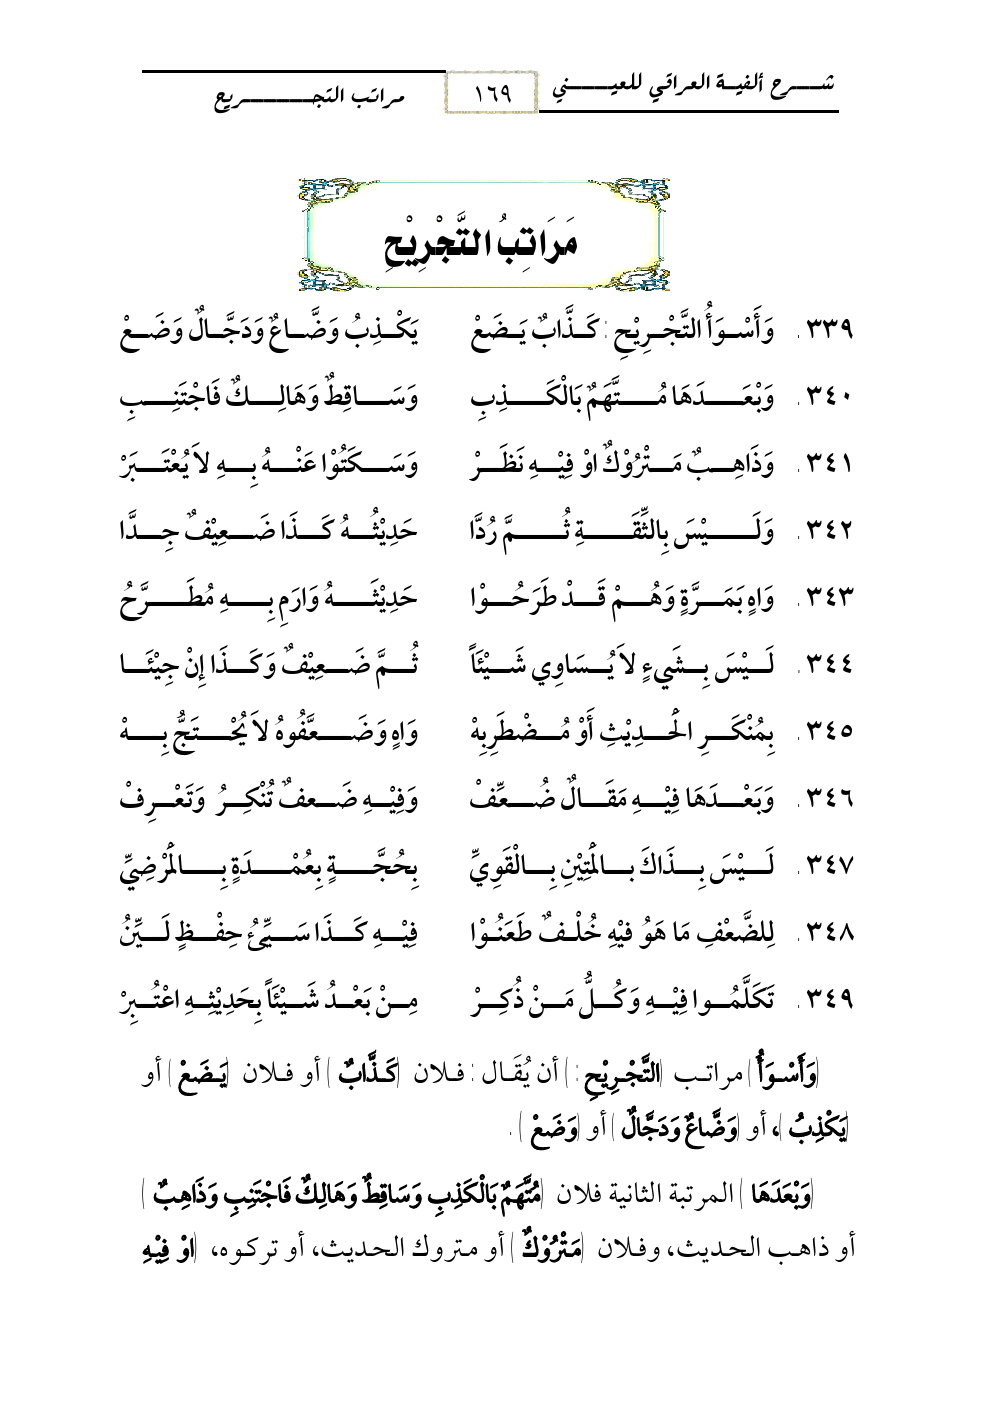 شرح ألفية العراقي للعيني ١٦٩ مراتب التجريح
مَرَاتِبُ التَّجْرِيْحِ
٣٣٩. وَأَسْوَأُ التَّجْرِيْحِ: كَذَّابٌ يَضَعْ يَكْذِبُ وَضَّاعٌ وَدَجَّالٌ وَضَعْ
٣٤٠. وَبْعَدَهَا مُتَّهَمٌ بَالْكَذِبِ وَسَاقِطٌ وَهَالِكٌ فَاجْتَنِبِ
٣٤١. وَذَاهِبٌ مَتْرُوْكٌ اوْ فِيْهِ نَظَرْ وَسَكَتُوْا عَنْهُ بِهِ لاَ يُعْتَبَرْ
٣٤٢. وَلَيْسَ بِالثِّقَةِ ثُمَّ رُدَّا حَدِيْثُهُ كَذَا ضَعِيْفٌ جِدَّا
٣٤٣. وَاهٍ بَمَرَّةٍ وَهُمْ قَدْ طَرَحُوْا حَدِيْثَهُ وَارَمِ بِهِ مُطَرَّحُ
٣٤٤. لَيْسَ بِشَيءٍ لاَ يُسَاوِي شَيْئَاً ثُمَّ ضَعِيْفٌ وَكَذَا إِنْ جِيْئَا
٣٤٥. بِمُنْكَرِ الْحَدِيْثِ أَوْ مُضْطَرِبِهْ وَاهٍ وَضَعَّفُوهُ لاَ يُحْتَجُّ بِهْ
٣٤٦. وَبَعْدَهَا فِيْهِ مَقَالٌ ضُعِّفْ وَفِيْهِ ضَعفٌ تُنْكِرُ وَتَعْرِفْ
٣٤٧. لَيْسَ بِذَاكَ بالْمَتِيْنِ بِالْقَوِيِّ بِحُجَّةٍ بِعُمْدَةٍ بِالْمَرْضِيِّ
٣٤٨. لِلضَّعْفِ مَا هَوُ فيْهِ خُلْفٌ طَعَنُوْا فِيْهِ كَذَا سَيِّئُ حِفْظٍ لَيِّنُ
٣٤٩. تَكَلَّمُوا فِيْهِ وَكُلُّ مَنْ ذُكِرْ مِنْ بَعْدُ شَيْئَاً بِحَدِيْثِهِ اعْتُبِرْ
(وَأَسْوَأُ) مراتب (التَّجْرِيْحِ:) أن يُقَال: فلان (كَذَّابٌ) أو فلان (يَضَعْ) أو
(يَكْذِبُ)، أو (وَضَّاعٌ وَدَجَّالٌ) أو (وَضَعْ).
(وَبْعَدَهَا) المرتبة الثانية فلان (مُتَّهَمٌ بَالْكَذِبِ وَسَاقِطٌ وَهَالِكٌ فَاجْتَنِبِ وَذَاهِبٌ)
أو ذاهب الحديث، وفلان (مَتْرُوْكٌ) أو متروك الحديث، أو تركوه، (اوْ فِيْهِ